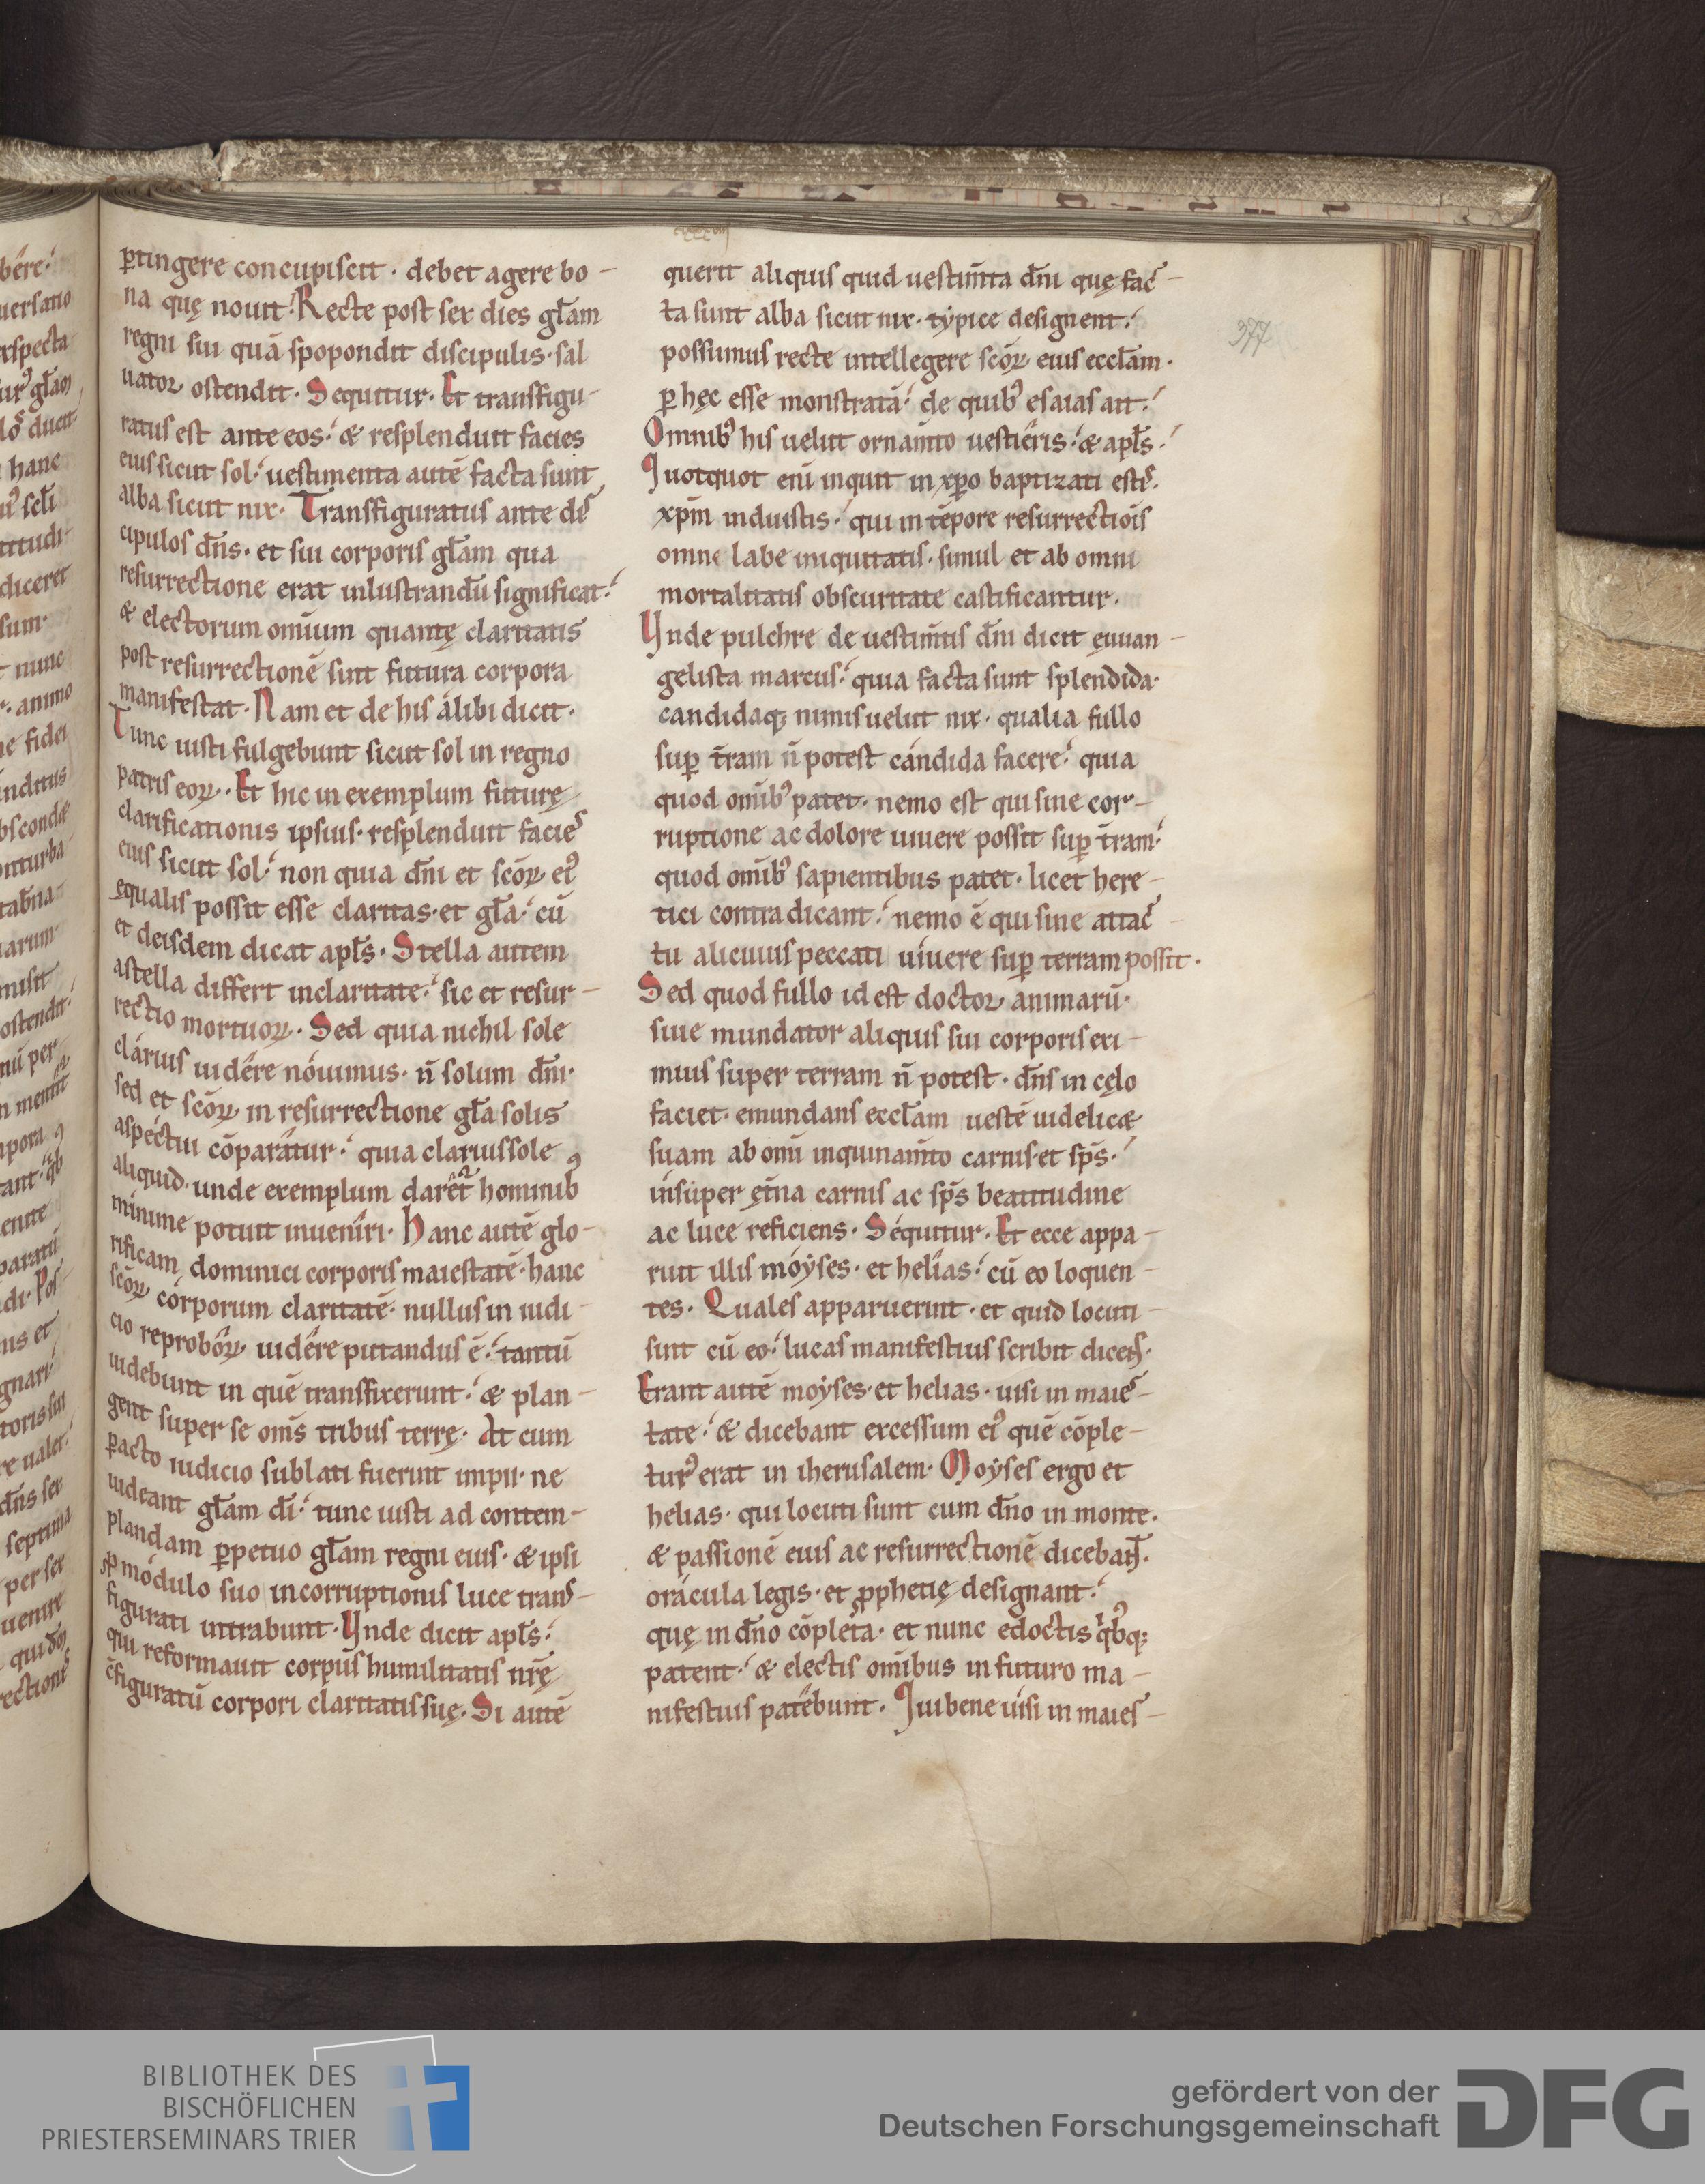 ꝑtingere concupiscit · debet agere bo-
na quę nouit · Recte post sex dies gl̄am
regni sui quā spopondit discipulis · sal
uator ostendit · Sequitur · Et transfigu-
ratus est ante eos · & resplenduit facies
eius sicut sol · uestimenta autē facta sunt
alba sicut nix · Transfiguratus ante dis
cipulos dn̄s · et sui corporis gl̄am qua
resurrectione erat inlustrandū significat ·
& electorum omīum quantę claritatis
post resurrectionē sint futura corpora
manifestat · Nam et de his álibi dicit ·
Tunc iusti fulgebunt sicut sol in regno
patris eoꝝ · Et hic in exemplum futurę
clarificationis ipsius · resplenduit facies
eius sicut sol · non quia dn̄i et scōꝝ ei᾽
ęqualis possit esse claritas · et gl̄a · cū
et deisdem dicat apl̄s · Stella autem
astella differt inclaritate · sic et resur-
rectio mortuoꝝ · Sed quia nichil sole
clárius uidére nóuimus · n̄ solum dn̄i ·
sed et scōꝝ in resurrectione gl̄a solis
aspéctui cōparâtur · quia clarius sole
aliquid · unde exemplum darêt² hominib᾽
minime potuit inuenîri · Hanc autē glo-
rificam dominici corporis maiestatē · hanc
scōꝝ córporum claritatē · nullus in iudi-
cio reprobôꝝ uidêre putandus ē · tantū
uidebunt in quē transfixerunt · & plan-
gent super se om̄s tribus terrę · At cum
ꝑacto iudicio sublati fuerint impii · ne
uideant gl̄am dī · tunc iusti ad contem-
plandam ꝑpetuo gl̄am regni eius · & ipsi
ꝓ módulo suo incorruptionis luce trans-
figurati intrabunt · Vnde dicit apl̄s ·
qui reformauit corpus humilitatis nr̄ę
c̄figuratū corpori claritatis suę · Si autē
querit aliquis quid uestim̄ta dn̄i quę fac-
ta sunt alba sicut nix · tẏpice designent ·
possumus recte intellegere scōꝝ eius eccl̄am ·
ꝑ hęc esse monstratā · de quib᾽ esaias ait ·
Omnib᾽ his uelut ornam̄to uestiêris · & apl̄s ·
Quotquot enī inquit in xp̄o baptizati estis ·
xp̄m induistis · qui in tēpore resurrectiōis
omni labe iniquitatis · simul et ab omni
mortalitatis obscuritate castificantur ·
Vnde pulchre de uestim̄tis dn̄i dicit ęuuan-
gelista marcus · quia facta sunt splendida ·
candidaqꝫ nimis uelut nix · qualia fullo
suꝑ t̄ram n̄ potest cándida facere · quia
quod omīb᾽ patet · nemo est qui sine cor-
ruptione ac dolore uiuere possit suꝑ t̄ram ·
quod omīb᾽ sapientibus patet · licet here-
tici contradicant · nemo ē qui sine attac-
tu alicuius peccati uíuere suꝑ terram possit ·
Sed quod fullo id est doctoꝛ animarū ·
siue mundator aliquis sui corporis exi-
mius super terram n̄ potest · dn̄s in cęlo
faciet · emundans eccl̄am uestē uidelic&
suam ab omī inquinam̄to carnis · et sp̄s ·
insúper ęt̄na carnis ac sp̄s beatitudine
ac luce reficiens · Séquitur · Et ecce appa-
ruit illis móẏses · et helîas · cū eo loquen-
tes · Quales apparuerint · et quid locuti-
sint cū eo · lucas manifestius scribit dicens ·
Erant autē moẏses · et helias · uisi in maies-
tate · & dicebant excessum ei᾽ quē cōple-
tur᾽ erat in iherusalem · Moẏses ergo et
helias · qui locuti sunt cum dn̄o in monte ·
& passionē eius ac resurrectionē dicebant ·
orácula legis · et ꝓphetię designant ·
quę in dn̄o cōpleta · et nunc edoctis qⁱb᾽qꝫ
patent · & electis omībus in futuro ma-
nifestius patêbunt · Qui bene uísi in maies-
377
BIBLIOTHEK DES
BISCHÖFLICHEN
PRIESTERSEMINARS TRIER
gefördert von der
Deutschen Forschungsgemeinschaft
DFG